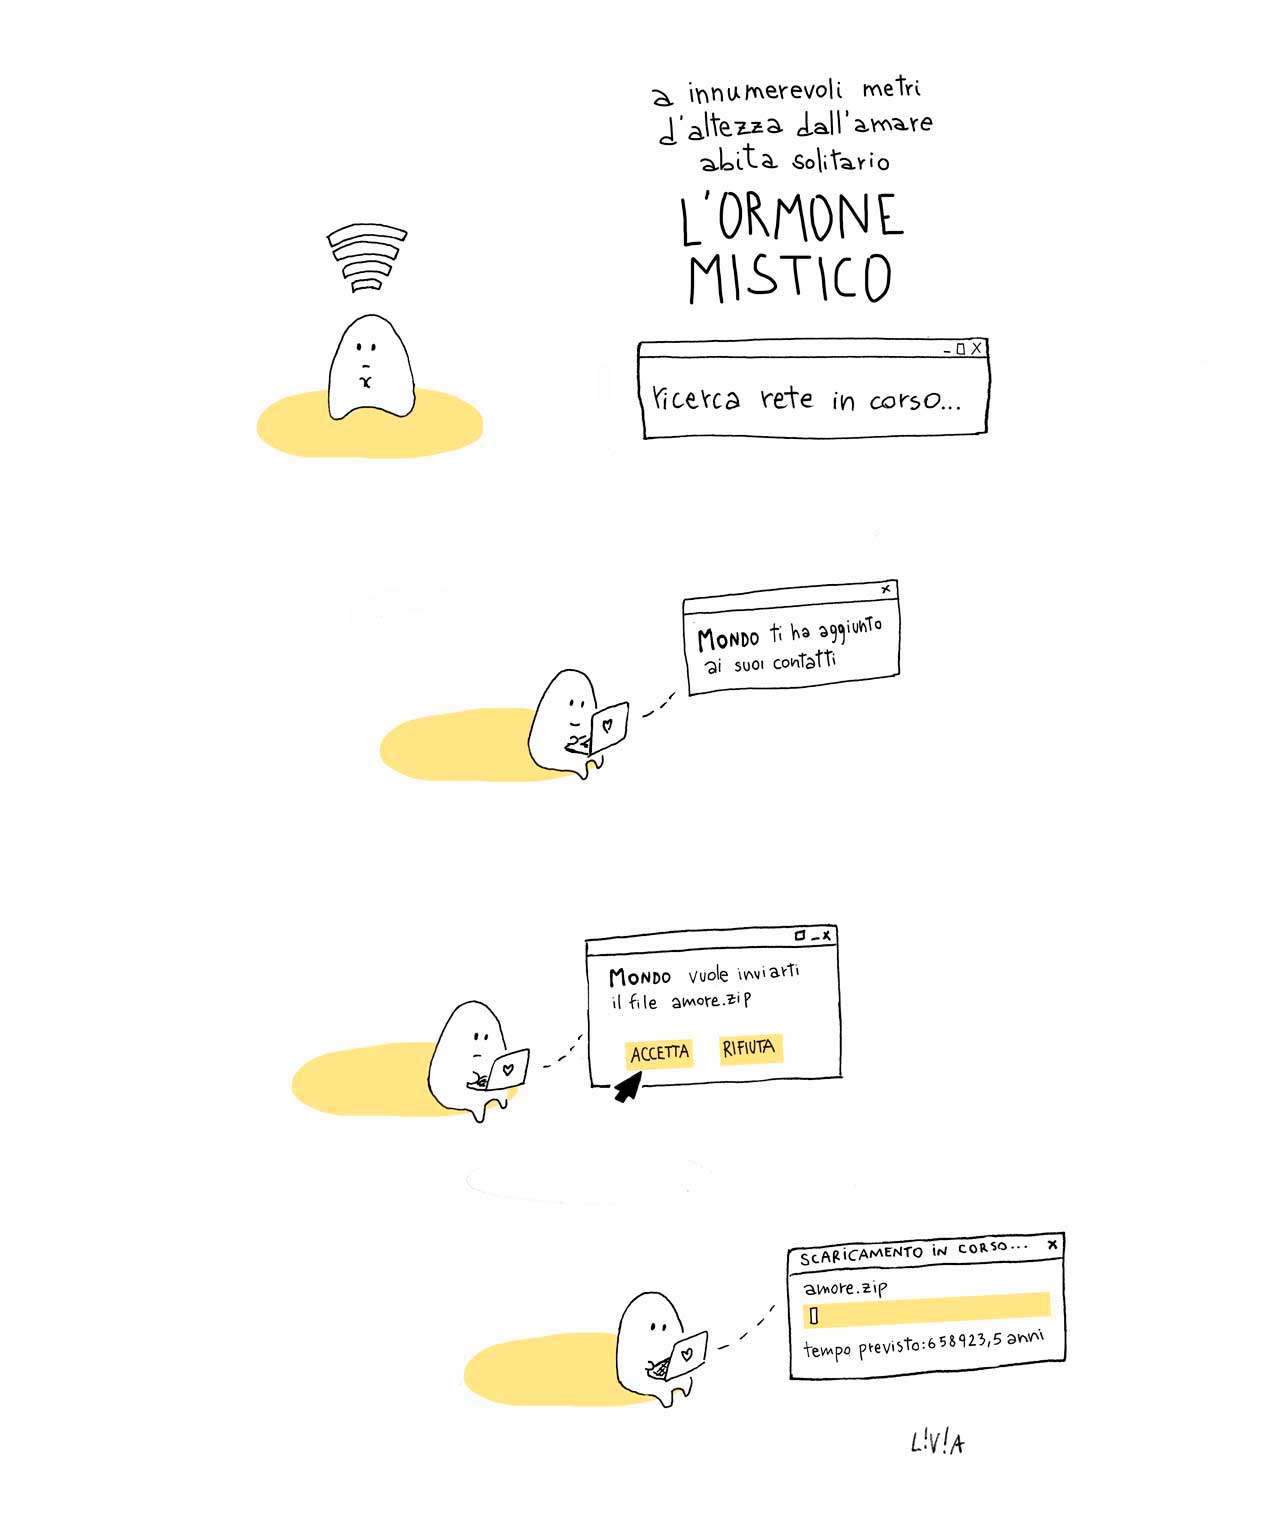 a innumerevoli metri
d'altezza dall'amare
abita solitario
L'ORMONE
MISTICO
ricerca rete in corso...
MONDO ti ha aggiunto
ai suoi contatti
MONDO vuole inviarti
il file amore.zip
ACCETTA RIFIUTA
SCARICAMENTO IN CORSO...
amore.zip
tempo previsto:658923,5 anni
L!V!A